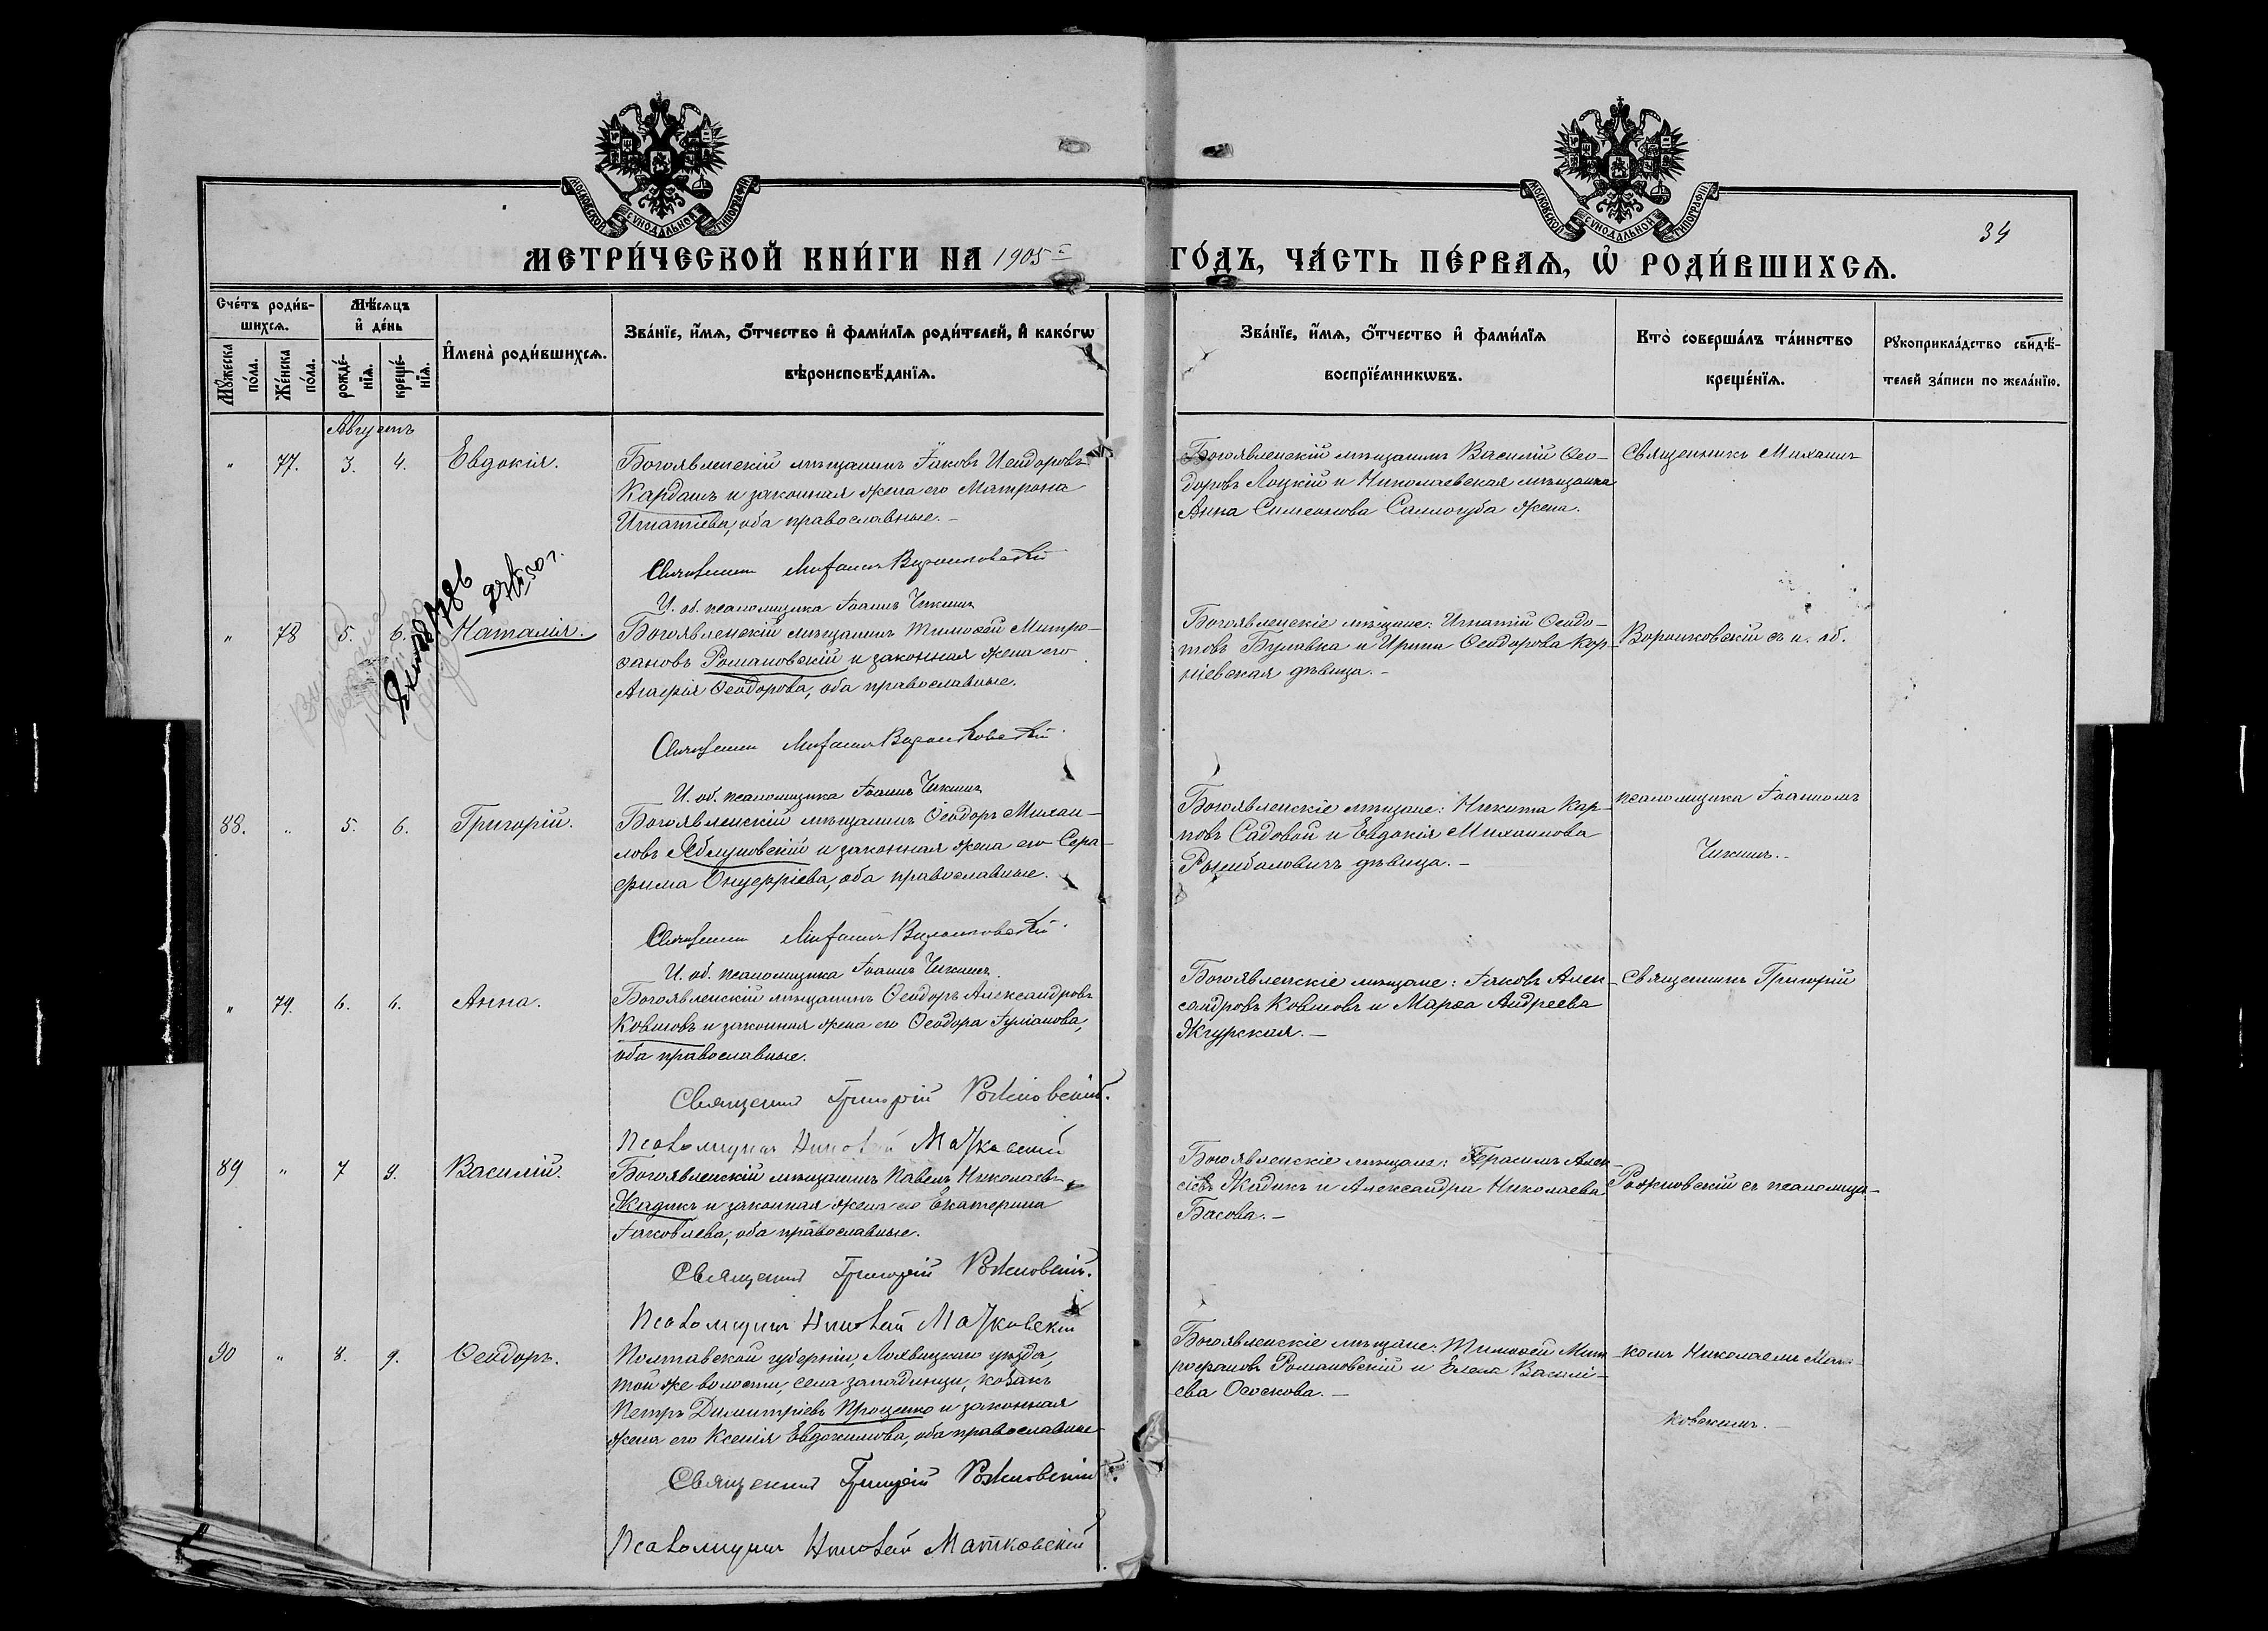 МОСКОВСКОЙ СУНОДАЛЬНОЙ ТИПОГРАФІИ
МОСКОВСКОЙ СУНОДАЛЬНОЙ ТИПОГРАФІИ
34
МЕТРИ́ЧЕСКОЙ КНИ́ГИ НА 1905 ГО́ДЪ, ЧА́СТЬ ПЕ́РВАѦ, Ѡ҆ РОДИ́ВШИХСѦ.
Сче́тъ роди́в-
шихсѧ.
Мꙋ́жеска по́ла.
Же́нска по́ла.
Мѣ́сѧцъ
и҆ де́нь
рожде́-нїѧ.
креще́-нїѧ.
И҆мена̀ роди́вшихсѧ.
Зва́нїе, и҆́мѧ, ѻ҆́тчество и҆ фами́лїѧ роди́телей, и҆ како́гѡ
вѣроисповѣ́данїѧ.
Зва́нїе, и҆́мѧ, ѻ҆́тчество и҆ фами́лїѧ
воспрїе́мникѡвъ.
Кто̀ соверша́лъ та́инство
креще́нїѧ.
Рꙋкоприкла́дство свидѣ́-
телей за́писи по жела́нїю.
Августъ
" 77. 3. 4. Евдокія.
Богоявленскій мѣщанинъ Іаковъ Исидоровъ
Кардашъ и законная жена его Матрона
Игнатіева, оба православные. –
Священникъ Михаилъ Ворошковскій
И. об. псаломщика Іоаннъ Чикинъ
Богоявленскій мѣщанинъ Василій Ѳео-
доровъ Лоцкій и Николаевская мѣщанка
Анна Симеонова Саллогуба жена.
Священникъ Михаилъ
" 78 5. 6. Наталія.
Богоявленскій мѣщанинъ Тимоѳей Митро-
фановъ Романовскій и законная жена его
Агафія Ѳеодорова, оба православные.
Священникъ Михаилъ Ворошковскій
И. об. псаломщика Іоаннъ Чикинъ
Богоявленскіе мѣщане: Игнатій Ѳеодо-
товъ Булавка и Ирина Ѳеодорова Кор-
ніевская дѣвица. –
Ворошковскій съ и. об.
88. " 5. 6. Григорій.
Богоявленскій мѣщанинъ Ѳеодоръ Михаи-
ловъ Яблуновскій и законная жена его Сера-
фима Онуфріева, оба православные.
Священникъ Михаилъ Ворошковскій
И. об. псаломщика Іоаннъ Чикинъ.
Богоявленскіе мѣщане: Никита Кар-
повъ Садовой и Евдокія Михаилова
дѣвица. –
псаломщика Іоанномъ
Чикинъ. –
" 79. 6. 6. Анна.
Богоявленскій мѣщанинъ Ѳеодоръ Александровъ
Ковшовъ и законная жена его Ѳеодора Іуліанова,
оба православные.
Священникъ Григорій Рожновскій.
Псаломщикъ Николай Матковскій
Богоявленскіе мѣщане: Іаковъ Алек-
сандровъ Ковшовъ и Марѳа Андреева
Жгурская. –
Священникъ Григорій
89 " 7 9. Василій.
Богоявленскій мѣщанинъ Павелъ Николаевъ
Жадикъ и законная жена его Екатерина
Іаковлева, оба православные.
Священникъ Григорій Рожновскій.
Псаломщикъ Николай Матковскій
Богоявленскіе мѣщане: Герасимъ Алек-
сѣевъ Жадикъ и Александра Николаева
Басова. –
Рожновскій съ псаломщи-
90 " 8. 9. Ѳеодоръ.
Полтавской губерніи, Лохвицкаго уѣзда,
той же волости, села западинци, козакъ
Петръ Димитріевъ Проценко и законная
жена его Ксенія Евдокимова, оба православные
Священникъ Григорій Рожновскій.
Псаломщикъ Николай Матковскій
Богоявленскіе мѣщане: Тимоѳей Мит-
рофановъ Романовскій и Елена Василі-
ева Ососкова. –
комъ Николаемъ Мат-
ковскимъ. –